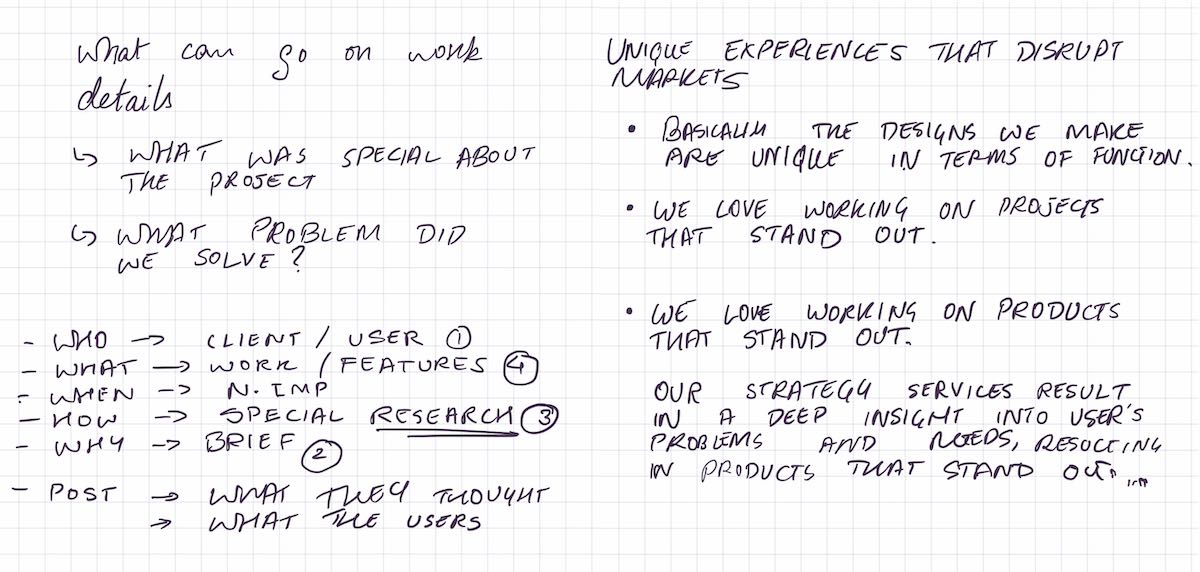 What can go on work
details
↳ WHAT WAS SPECIAL ABOUT
THE PROJECT
↳ WHAT PROBLEM DID
WE SOLVE?
- WHO → CLIENT / USER ①
- WHAT → WORK / FEATURES ④
- WHEN → N. IMP
- HOW → SPECIAL RESEARCH ③
- WHY → BRIEF ②
- POST → WHAT THEY THOUGHT
→ WHAT THE USERS
UNIQUE EXPERIENCES THAT DISRUPT
MARKETS
• BASICALLY THE DESIGNS WE MAKE
ARE UNIQUE IN TERMS OF FUNCTION.
• WE LOVE WORKING ON PROJECTS
THAT STAND OUT.
• WE LOVE WORKING ON PRODUCTS
THAT STAND OUT.
OUR STRATEGY SERVICES RESULT
IN A DEEP INSIGHT INTO USER'S
PROBLEMS AND NEEDS, RESULTING
IN PRODUCTS THAT STAND OUT.